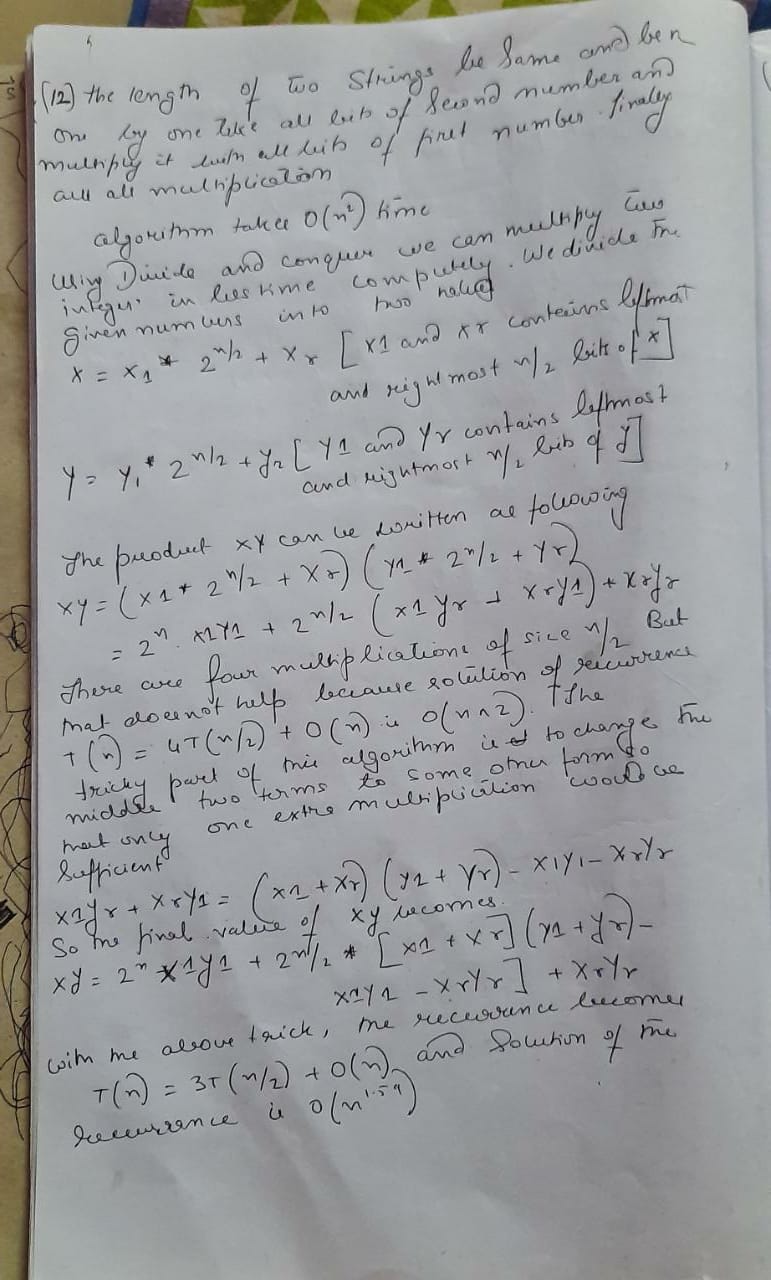 (12) the length of two Strings be Same and be n
one by one take all bits of Second number and
multiply it with all bits of first number. finally
all multiplication
algorithm takes O(n²) time
Using Divide and conquer we can multiply two
integers in less time complexity. We divide the
given numbers into two halves
X = X1 * 2^n/2 + Xr [X1 and Xr contains leftmost
and rightmost n/2 bits of x]
Y = Y1* 2^n/2 + Yr [Y1 and Yr contains leftmost
and rightmost n/2 bits of Y]
The product XY can be written as following
XY = (X1 * 2^n/2 + Xr) (Y1 * 2^n/2 + Yr)
= 2^n . X1Y1 + 2^n/2 (X1Yr + XrY1) + XrYr
There are four multiplications of size n/2 But
that doesnot help because solution of recurrence
T(n) = 4T(n/2) + O(n) is O(n^2). The
tricky part of this algorithm is to change the
middle two terms to some other form so
that only one extra multiplication would be
Sufficient
X1Yr + XrY1 = (X1 + Xr) (Y1 + Yr) - X1Y1 - XrYr
So the final value of XY becomes.
XY = 2^n X1Y1 + 2^n/2 * [X1 + Xr] (Y1 + Yr) -
X1Y1 - XrYr] + XrYr
with the above trick, the recurrance becomes
T(n) = 3T(n/2) + O(n) and Solution of the
recurrence is O(n^1.59)